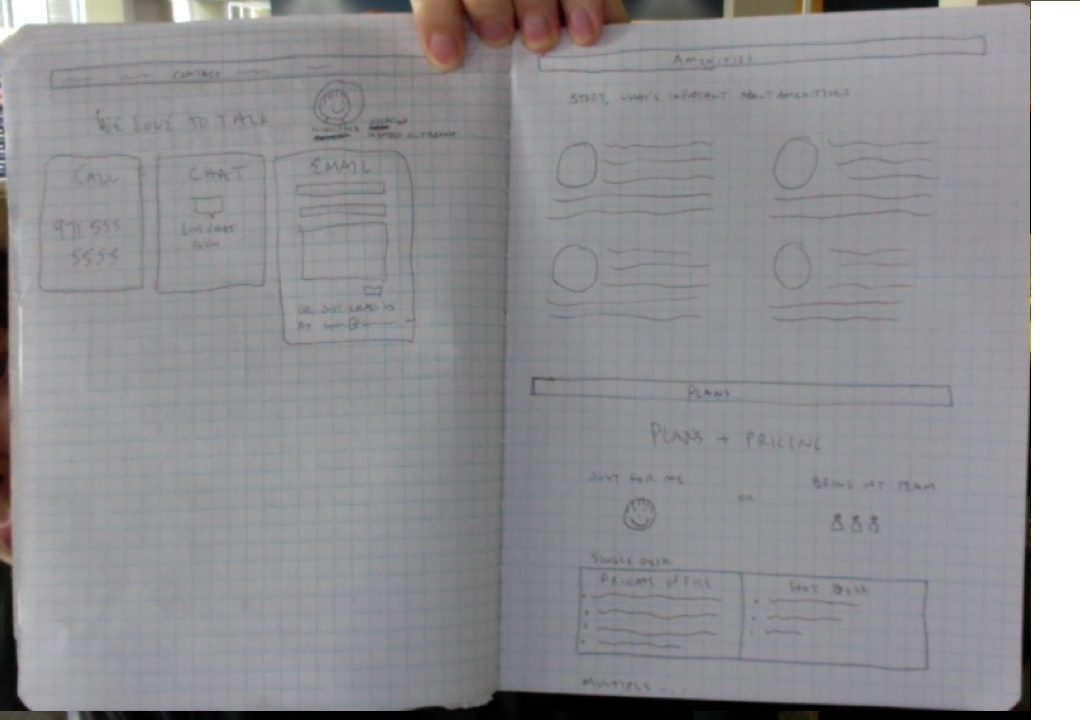 CONTACT
WE LOVE TO TALK
CALL
971 555
5555
CHAT
LIVE CHAT
EMAIL
AT
@
AMENITIES
START, WHAT'S IMPORTANT ABOUT AMENITIES
PLANS
PLANS + PRICING
JUST FOR ME
OR
BRING MY TEAM
SINGLE DESK
PRIVATE OFFICE
HOT DESK
MULTIPLE ...